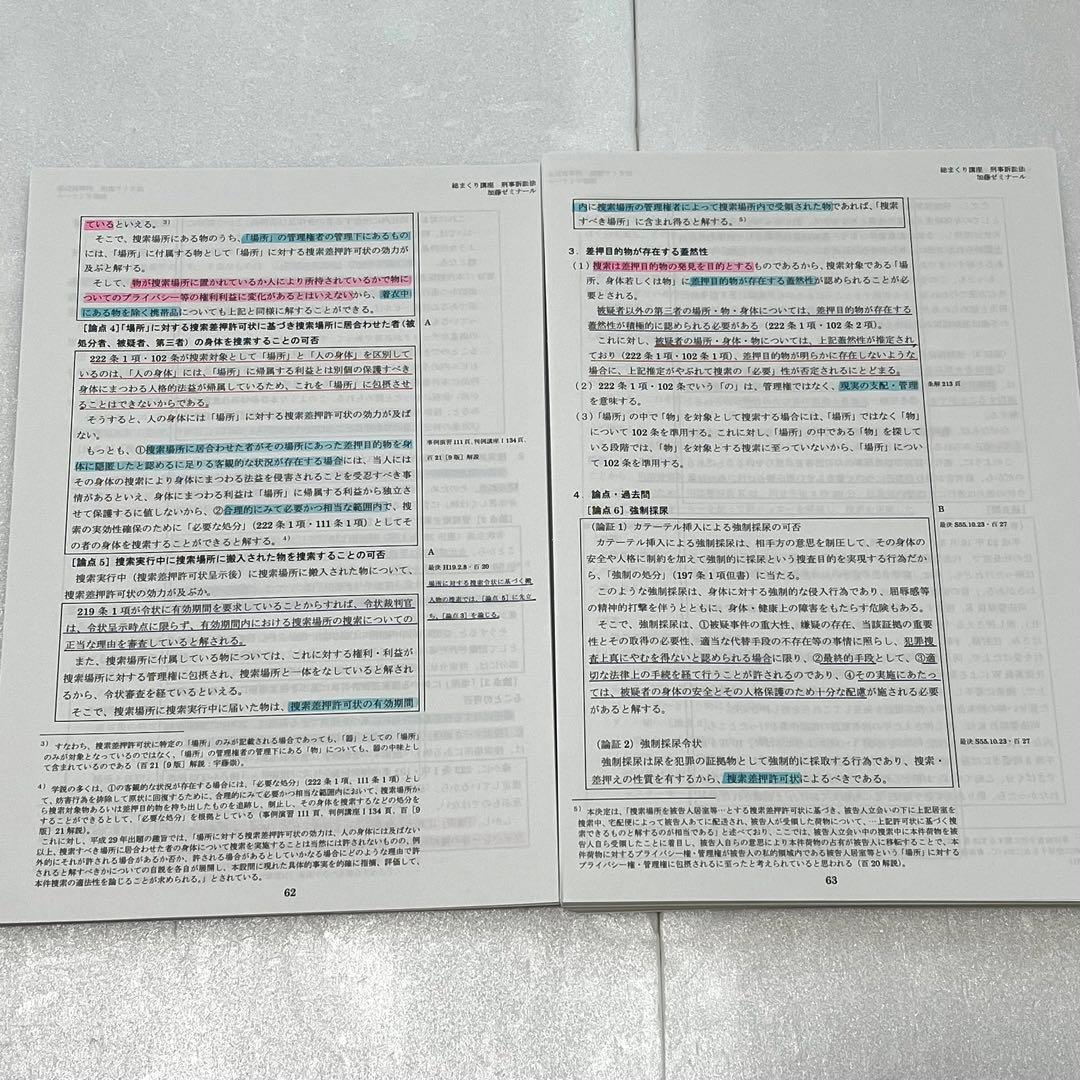 総まくり講座 刑事訴訟法
加藤ゼミナール
ているといえる。3)
そこで、捜索場所にある物のうち、「場所」の管理権者の管理下にあるもの
には、「場所」に付属する物として「場所」に対する捜索差押許可状の効力が
及ぶと解する。
そして、物が捜索場所に置かれているか人により所持されているかで物に
ついてのプライバシー等の権利利益に変化があるとはいえないから、着衣中
にある物を除く携帯品についても上記と同様に解することができる。
[論点4]「場所」に対する捜索差押許可状に基づき捜索場所に居合わせた者(被
処分者、被疑者、第三者)の身体を捜索することの可否
A
222条1項・102条が捜索対象として「場所」と「人の身体」を区別して
いるのは、「人の身体」には、「場所」に帰属する利益とは別個の保護すべき
身体にまつわる人格的法益が帰属しているため、これを「場所」に包摂させ
ることはできないからである。
そうすると、人の身体には「場所」に対する捜索差押許可状の効力が及ば
ない。
もっとも、①捜索場所に居合わせた者がその場所にあった差押目的物を身
体に隠匿したと認めるに足りる客観的な状況が存在する場合には、当人には
その身体の捜索により身体にまつわる法益を侵害されることを受忍すべき事
情があるといえ、身体にまつわる利益は「場所」に帰属する利益から独立さ
せて保護するに値しないから、②合理的にみて必要かつ相当な範囲内で、捜
索の実効性確保のために「必要な処分」(222条1項・111条1項)としてそ
の者の身体を捜索することができると解する。4)
事例演習111頁、判例講座Ⅰ134頁、
百21[9版]解説
[論点5]捜索実行中に捜索場所に搬入された物を捜索することの可否
A
捜索実行中(捜索差押許可状呈示後)に捜索場所に搬入された物について、
捜索差押許可状の効力が及ぶか。
最決H19.2.8・百20
場所に対する捜索令状に基づく搬
入物の捜索では、[論点5]に先立
ち、[論点3]を論じる。
219条1項が令状に有効期間を要求していることからすれば、令状裁判官
は、令状呈示時点に限らず、有効期間内における捜索場所の捜索についての
正当な理由を審査していると解される。
また、捜索場所に付属している物については、これに対する権利・利益が
捜索場所に対する管理権に包摂され、捜索場所と一体をなしていると解され
るから、令状審査を経ているといえる。
そこで、捜索場所に捜索実行中に届いた物は、捜索差押許可状の有効期間
3) すなわち、捜索差押許可状に特定の「場所」のみが記載される場合であっても、「器」としての「場所」
のみが対象となっているのではなく、「場所」の管理権者の管理下にある「物」についても、器の中味とし
て含まれているのである(百21[9版]解説:宇藤崇)。
4) 学説の多くは、①の客観的な状況が存在する場合には、「必要な処分」(222条1項、111条1項)とし
て、妨害行為を排除して原状に回復するために、合理的にみて必要かつ相当な範囲内において、捜索場所か
ら捜索対象物あるいは差押目的物を持ち出したものを追跡し、制止し、その身体を捜索するなどの処分を
することができるとして、「必要な処分」を根拠としている(事例演習111頁、判例講座Ⅰ134頁、百[9
版]21解説)。
これに対し、平成29年出題の趣旨では、「場所に対する捜索差押許可状の効力は、人の身体には及ばない
以上、捜索すべき場所に居合わせた者の身体について捜索を実施することは当然には許されないものの、例
外的にそれが許される場合があるか否か、許される場合があるとしていかなる場合にどのような理由で許
されると解すべきかについての自説を各自が展開し、本設問に現れた具体的事実を的確に指摘、評価して、
本件捜索の適法性を論じることが求められる。」とされている。
62
総まくり講座 刑事訴訟法
加藤ゼミナール
内に捜索場所の管理権者によって捜索場所内で受領された物であれば、「捜索
すべき場所」に含まれ得ると解する。5)
3. 差押目的物が存在する蓋然性
(1) 捜索は差押目的物の発見を目的とするものであるから、捜索対象である「場
所、身体若しくは物」に差押目的物が存在する蓋然性が認められることが必
要とされる。
被疑者以外の第三者の場所・物・身体については、差押目的物が存在する
蓋然性が積極的に認められる必要がある(222条1項・102条2項)。
これに対し、被疑者の場所・身体・物については、上記蓋然性が推定され
ており(222条1項・102条1項)、差押目的物が明らかに存在しないような
場合に、上記推定がやぶれて捜索の「必要」性が否定されるにとどまる。
(2) 222条1項・102条でいう「の」は、管理権ではなく、現実の支配・管理
を意味する。
条解213頁
(3)「場所」の中で「物」を対象として捜索する場合には、「場所」ではなく「物」
について102条を準用する。これに対し、「場所」の中である「物」を探して
いる段階では、「物」を対象とする捜索に至っていないから、「場所」につい
て102条を準用する。
4. 論点・過去問
[論点6]強制採尿
B
(論証1) カテーテル挿入による強制採尿の可否
最決S55.10.23・百27
カテーテル挿入による強制採尿は、相手方の意思を制圧して、その身体の
安全や人格に制約を加えて強制的に採尿という捜査目的を実現する行為だか
ら、「強制の処分」(197条1項但書)に当たる。
このような強制採尿は、身体に対する強制的な侵入行為であり、屈辱感等
の精神的打撃を伴うとともに、身体・健康上の障害をもたらす危険もある。
そこで、強制採尿は、①被疑事件の重大性、嫌疑の存在、当該証拠の重要
性とその取得の必要性、適当な代替手段の不存在等の事情に照らし、犯罪捜
査上真にやむを得ないと認められる場合に限り、②最終的手段として、③適切
な法律上の手続を経て行うことが許されるのであり、④その実施にあたっ
ては、被疑者の身体の安全とその人格保護のため十分な配慮が施される必要
があると解する。
(論証2) 強制採尿令状
最決S55.10.23・百27
強制採尿は尿を犯罪の証拠物として強制的に採取する行為であり、捜索・
差押えの性質を有するから、捜索差押許可状によるべきである。
5) 本決定は、「捜索場所を被告人居室等…とする捜索差押許可状に基づき、被告人立会いの下に上記居室を
捜索中、宅配便によって被告人あてに配送され、被告人が受領した荷物について、…上記許可状に基づく捜
索できるものと解するのが相当である」と述べており、ここでは、被告人立会い中の捜索中に本件荷物を被
告人自ら受領したことに着目し、被告人自らの意思により本件荷物の占有が被告人に移転することで、本
件荷物に対するプライバシー権・管理権が被告人の私的領域内である被告人居室等という「場所」に対する
プライバシー権・管理権に包摂されるに至ったと考えられていると思われる(百20解説)。
63